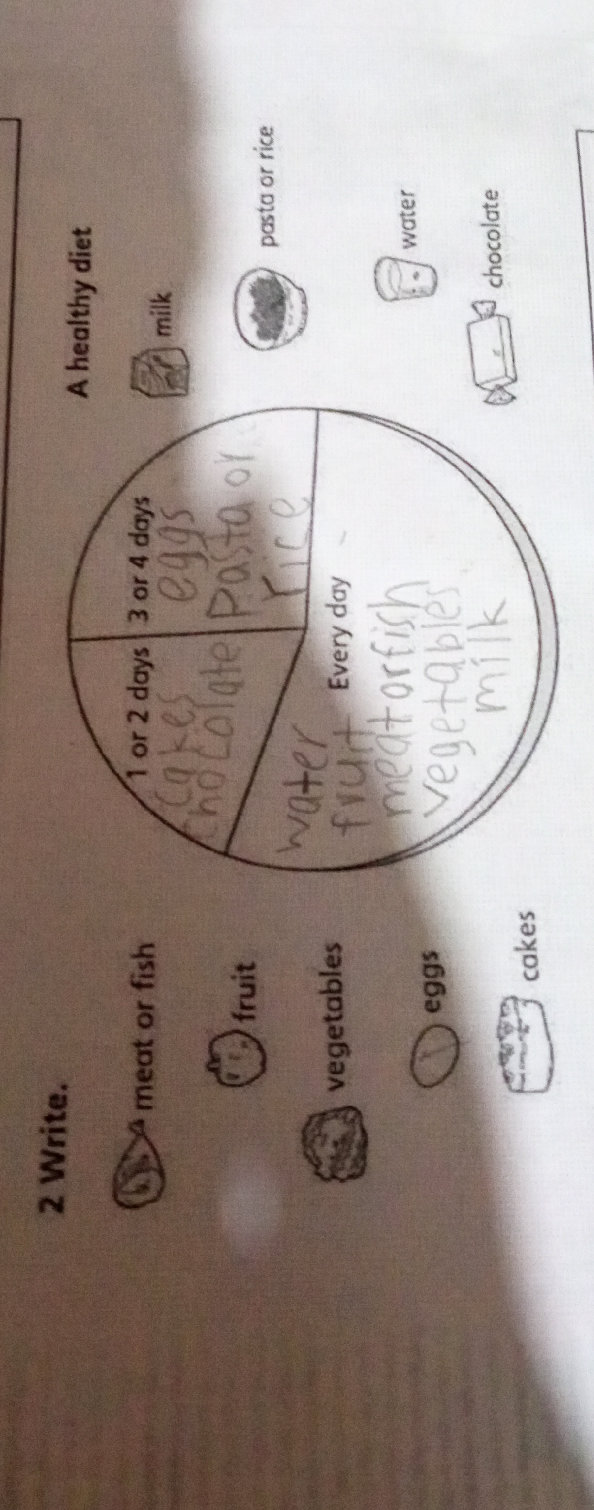 2 Write.
A healthy diet
meat or fish
fruit
vegetables
eggs
cakes
1 or 2 days
cakes
chocolate
3 or 4 days
eggs
Pasta or
rice
Every day
water
fruit
meat or fish
vegetables
milk
milk
pasta or rice
water
chocolate